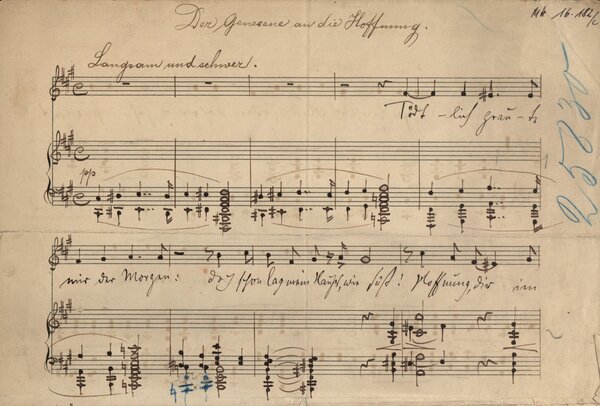 Der Genesene an die Hoffnung.
MH 16.182/c
25830
Langsam und schwer.
Tödt-lich grau-te
pp
mir der Morgen: doch schon lag mein Haupt, wie süß! Hoffnung, dir im